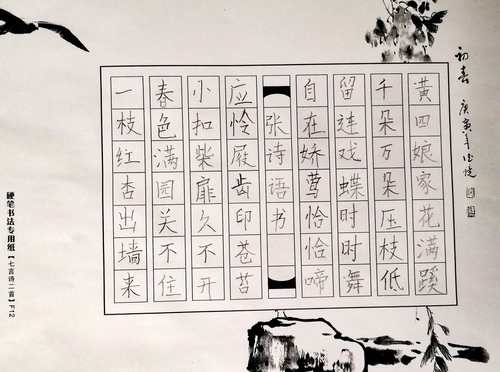 庚寅年
黄四娘家花满蹊
千朵万朵压枝低
留连戏蝶时时舞
自在娇莺恰恰啼
张诗语书
应怜屐齿印苍苔
小扣柴扉久不开
春色满园关不住
一枝红杏出墙来
硬笔书法专用纸【七言诗二首】F12